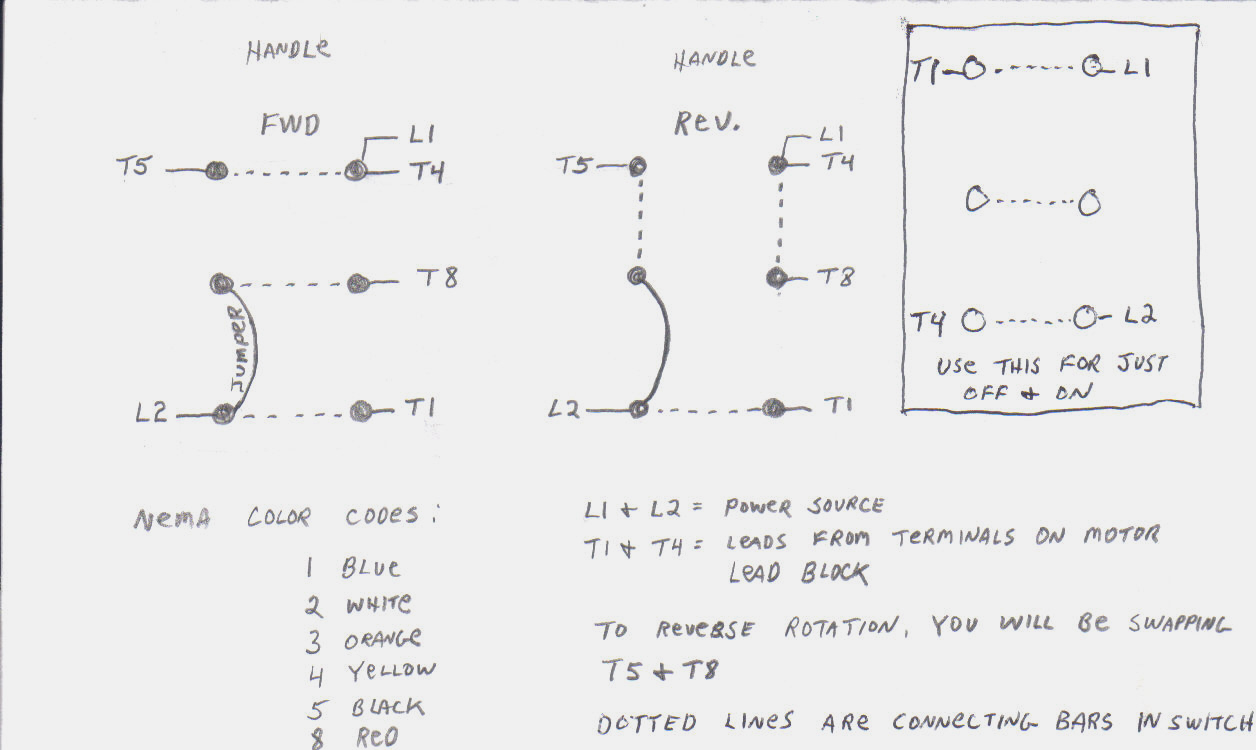 HANDLE
FWD
L1
T5
T4
T8
JUMPER
L2
T1
HANDLE
REV.
L1
T5
T4
T8
L2
T1
T1
L1
T4
L2
USE THIS FOR JUST
OFF & ON
NEMA COLOR CODES:
1 BLUE
2 WHITE
3 ORANGE
4 YELLOW
5 BLACK
8 RED
L1 & L2 = POWER SOURCE
T1 & T4 = LEADS FROM TERMINALS ON MOTOR
LEAD BLOCK
TO REVERSE ROTATION, YOU WILL BE SWAPPING
T5 & T8
DOTTED LINES ARE CONNECTING BARS IN SWITCH